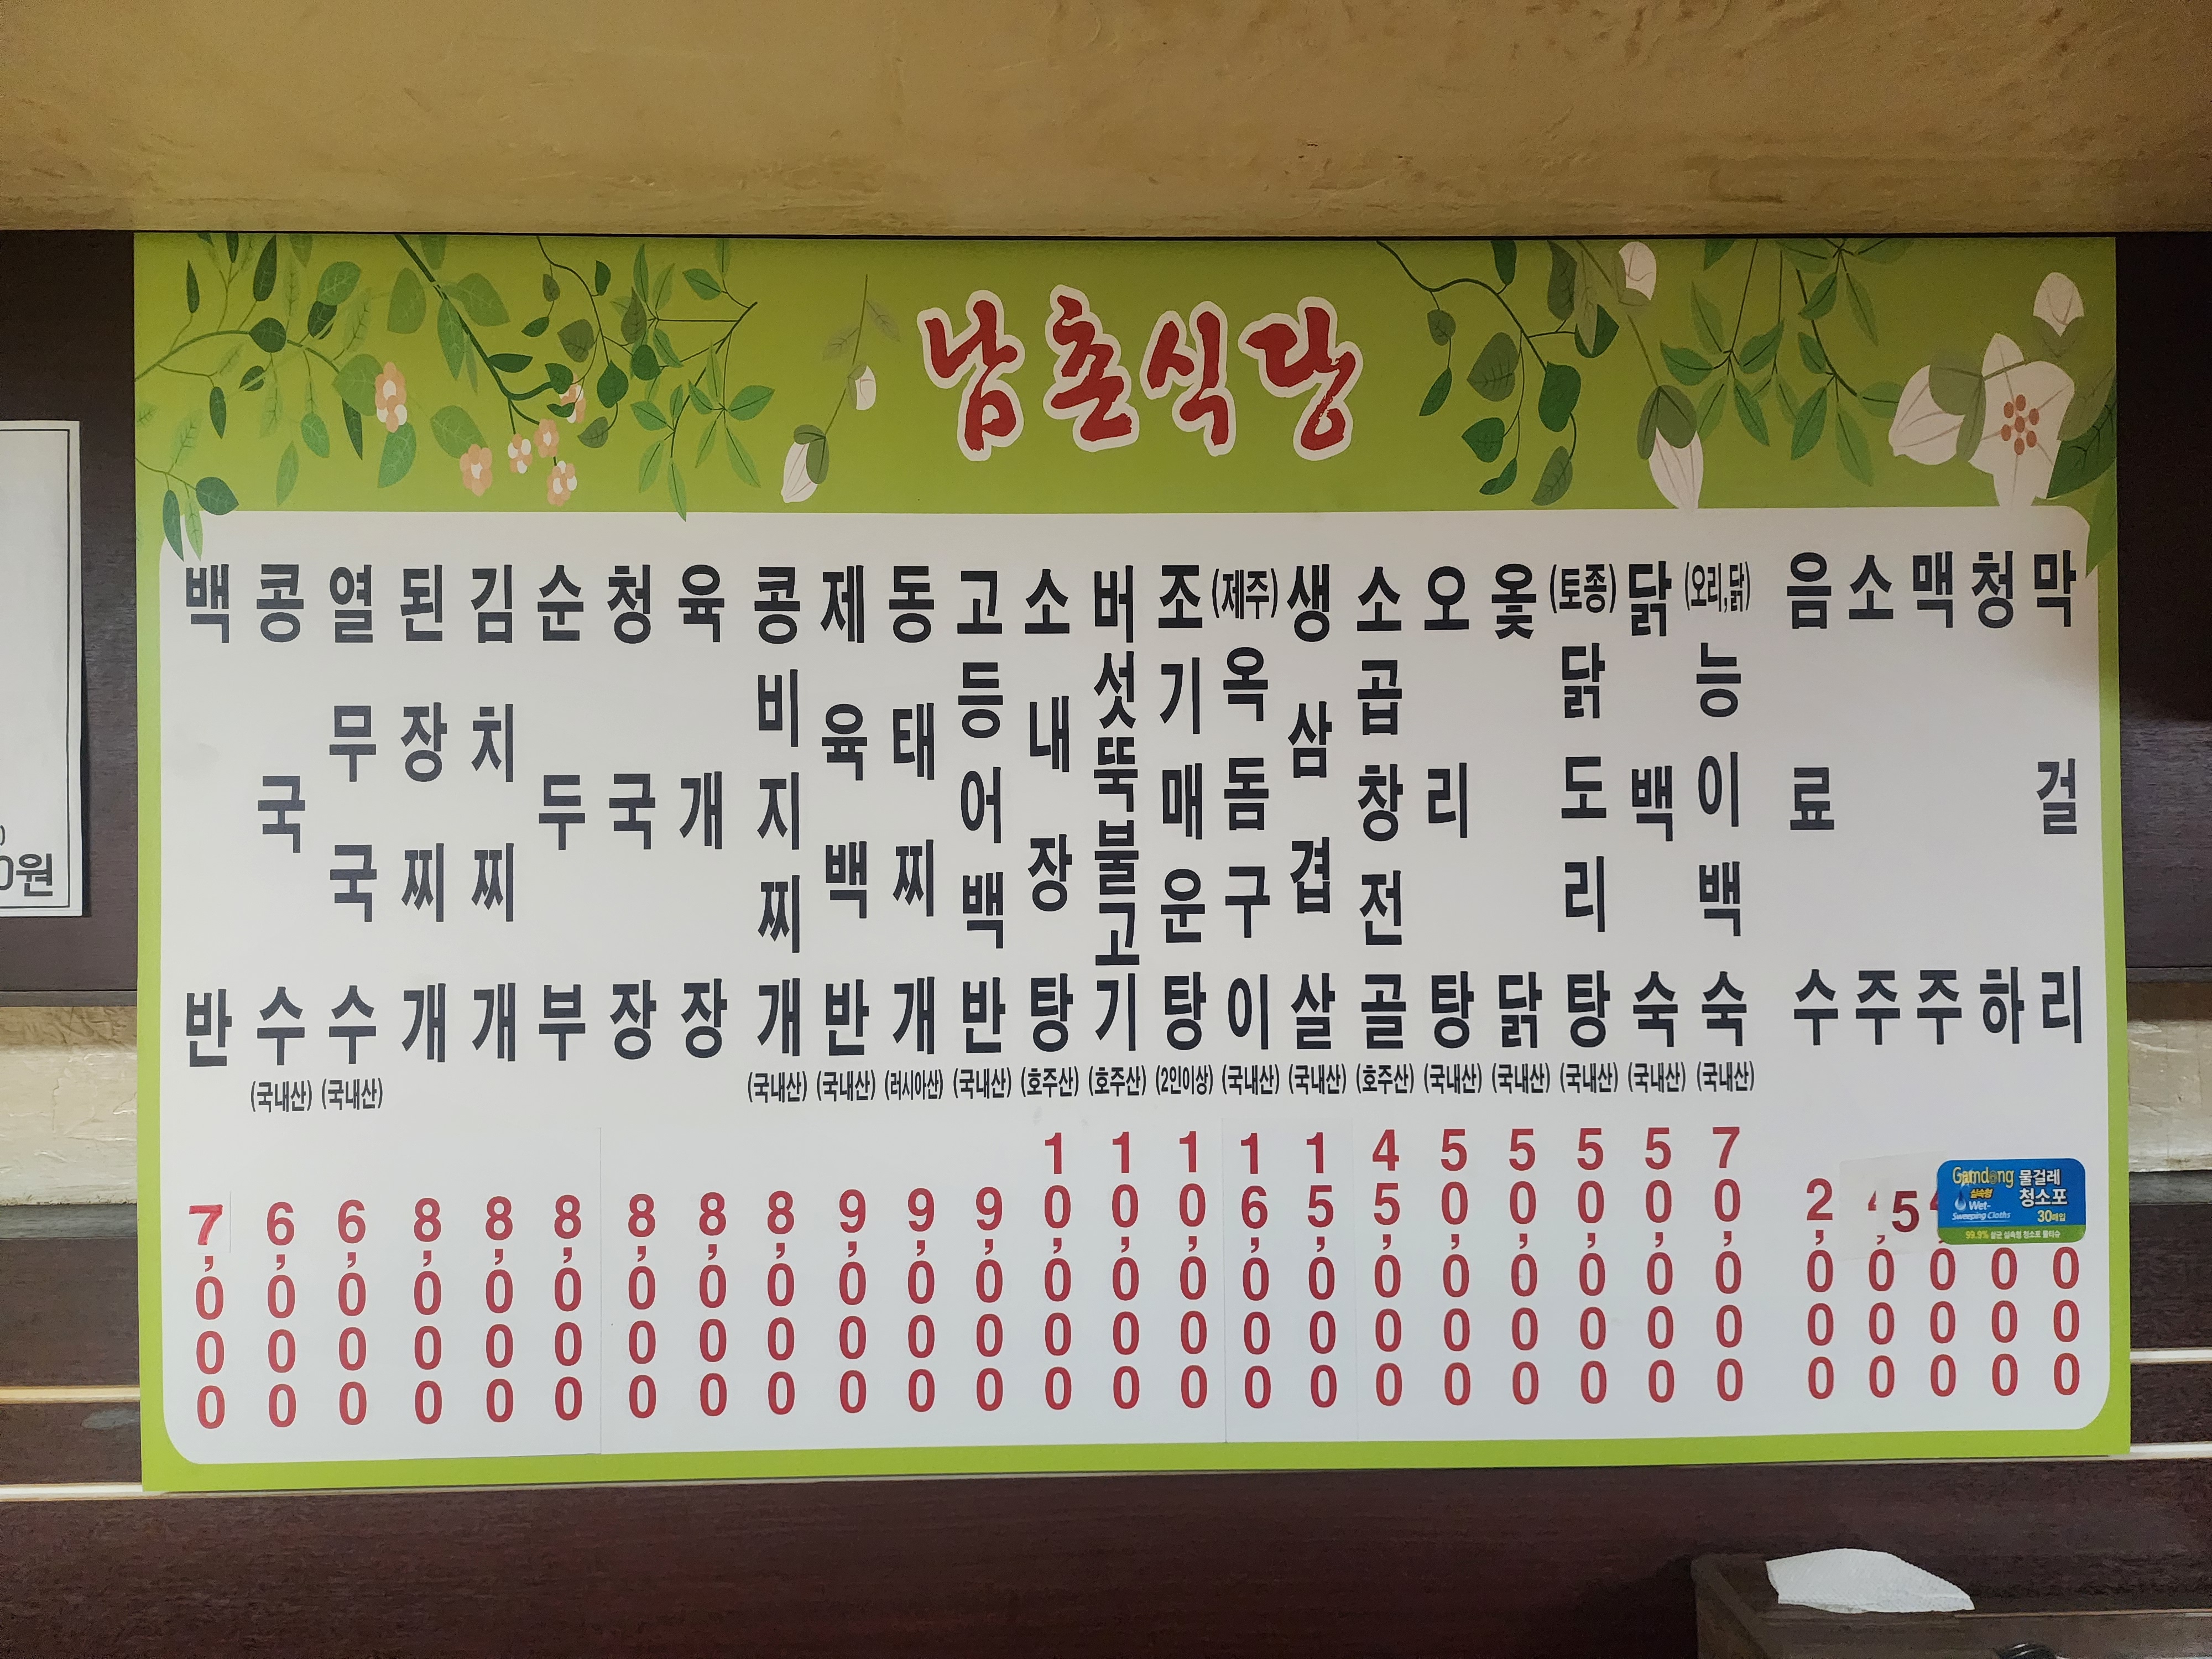 남촌식당
백반 7,000
콩국수 (국내산) 6,000
열무국수 (국내산) 6,000
된장찌개 8,000
김치찌개 8,000
순두부 8,000
청국장 8,000
육개장 8,000
콩비지찌개 (국내산) 8,000
제육백반 (국내산) 9,000
동태찌개 (러시아산) 9,000
고등어백반 (국내산) 9,000
소내장탕 (호주산) 10,000
버섯뚝불고기 (호주산) 10,000
조기매운탕 (2인이상) 10,000
(제주) 옥돔구이 (국내산) 16,000
생삼겹살 (국내산) 15,000
소곱창전골 (호주산) 45,000
오리탕 (국내산) 50,000
옻닭 (국내산) 50,000
(토종) 닭도리탕 (국내산) 50,000
닭백숙 (국내산) 50,000
(오리,닭) 능이백숙 (국내산) 70,000
음료수 2,000
소주 000
맥주 000
청하 000
막걸리 000
5
Gamdong 물걸레
실속형 청소포
Wet-
Sweeping Cloths 30매입
99.9%
0원